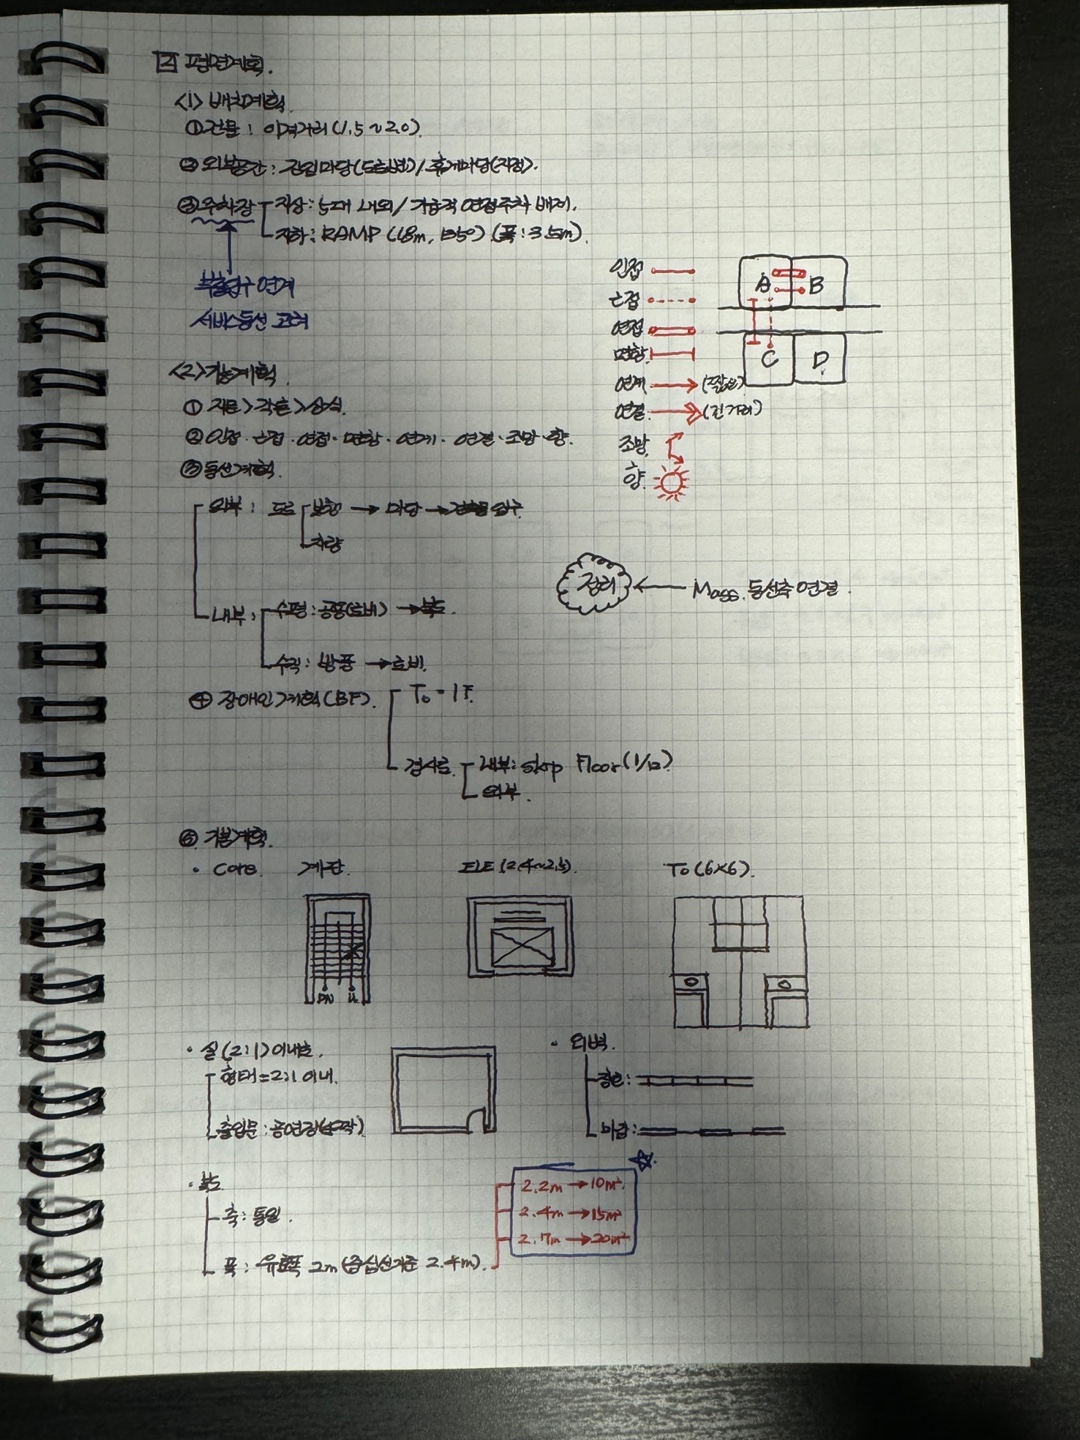 2 평면계획.
<1> 배치계획.
① 건물 : 이격거리 (1.5~2.0).
② 외부공간 : 진입마당(도로변)/휴게마당(지정).
③ 주차장 지상 : 5대 내외/가급적 연접주차 배제.
지하 : RAMP (18m, ) (폭 : 3.5m).
부출입구 연계
서비스동선 고려
인접
근접
연접
면함
연계 (짧은)
연결 (긴거리)
조망
향
A B
C D
<2> 기능계획.
① 지문>각론>상식.
② 인접·근접·연접·면함·연계·연결·조망·향.
③ 동선계획.
외부 : 도로 보행 → 마당 → 입구
차량
정리 ← Mass. 동선축 연결.
내부 : 수평 : 공용(로비) → 복도.
수직 : 방풍 → 로비.
④ 장애인계획(BF). To - 1F.
경사로 내부 : skip Floor (1/12)
외부.
⑤ 기본계획.
· Core. 계단 ELE (2.4~2.5). To (6×6).
DN
· 실 (2:1) 이내로.
형태 = 2:1 이내.
출입문 : 공연장
· 외벽.
창호 :
마감 :
· 복도
축 : 통일.
폭 : 유효폭 2m (중심선기준 2.4m).
2.2m → 10m².
2.4m → 15m²
2.7m → 20m²